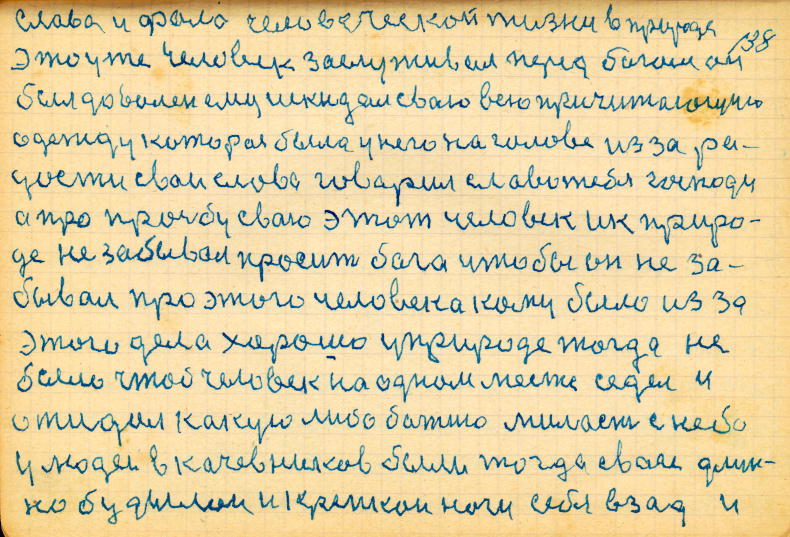 слава и фала человеческой жизни в природе
138
этоуже человек заслуживал перед богом он
был доволен ему и кидал сваю всю причитающую
одежду которая была у него на голове из за ра-
дости сваи слова говарил слава тебя господи
а про прозбу сваю этот человек и к приро-
де не забывал просит бога чтобы он не за-
бывал про этого человека кому было из за
этого дела харошо у природе тогда не
было чтоб человек на одном месте седел и
ожидал какую либо божию миласть с неба
у людей в качевников были тогда сваее длин-
но и крепкои ноги себя взад и